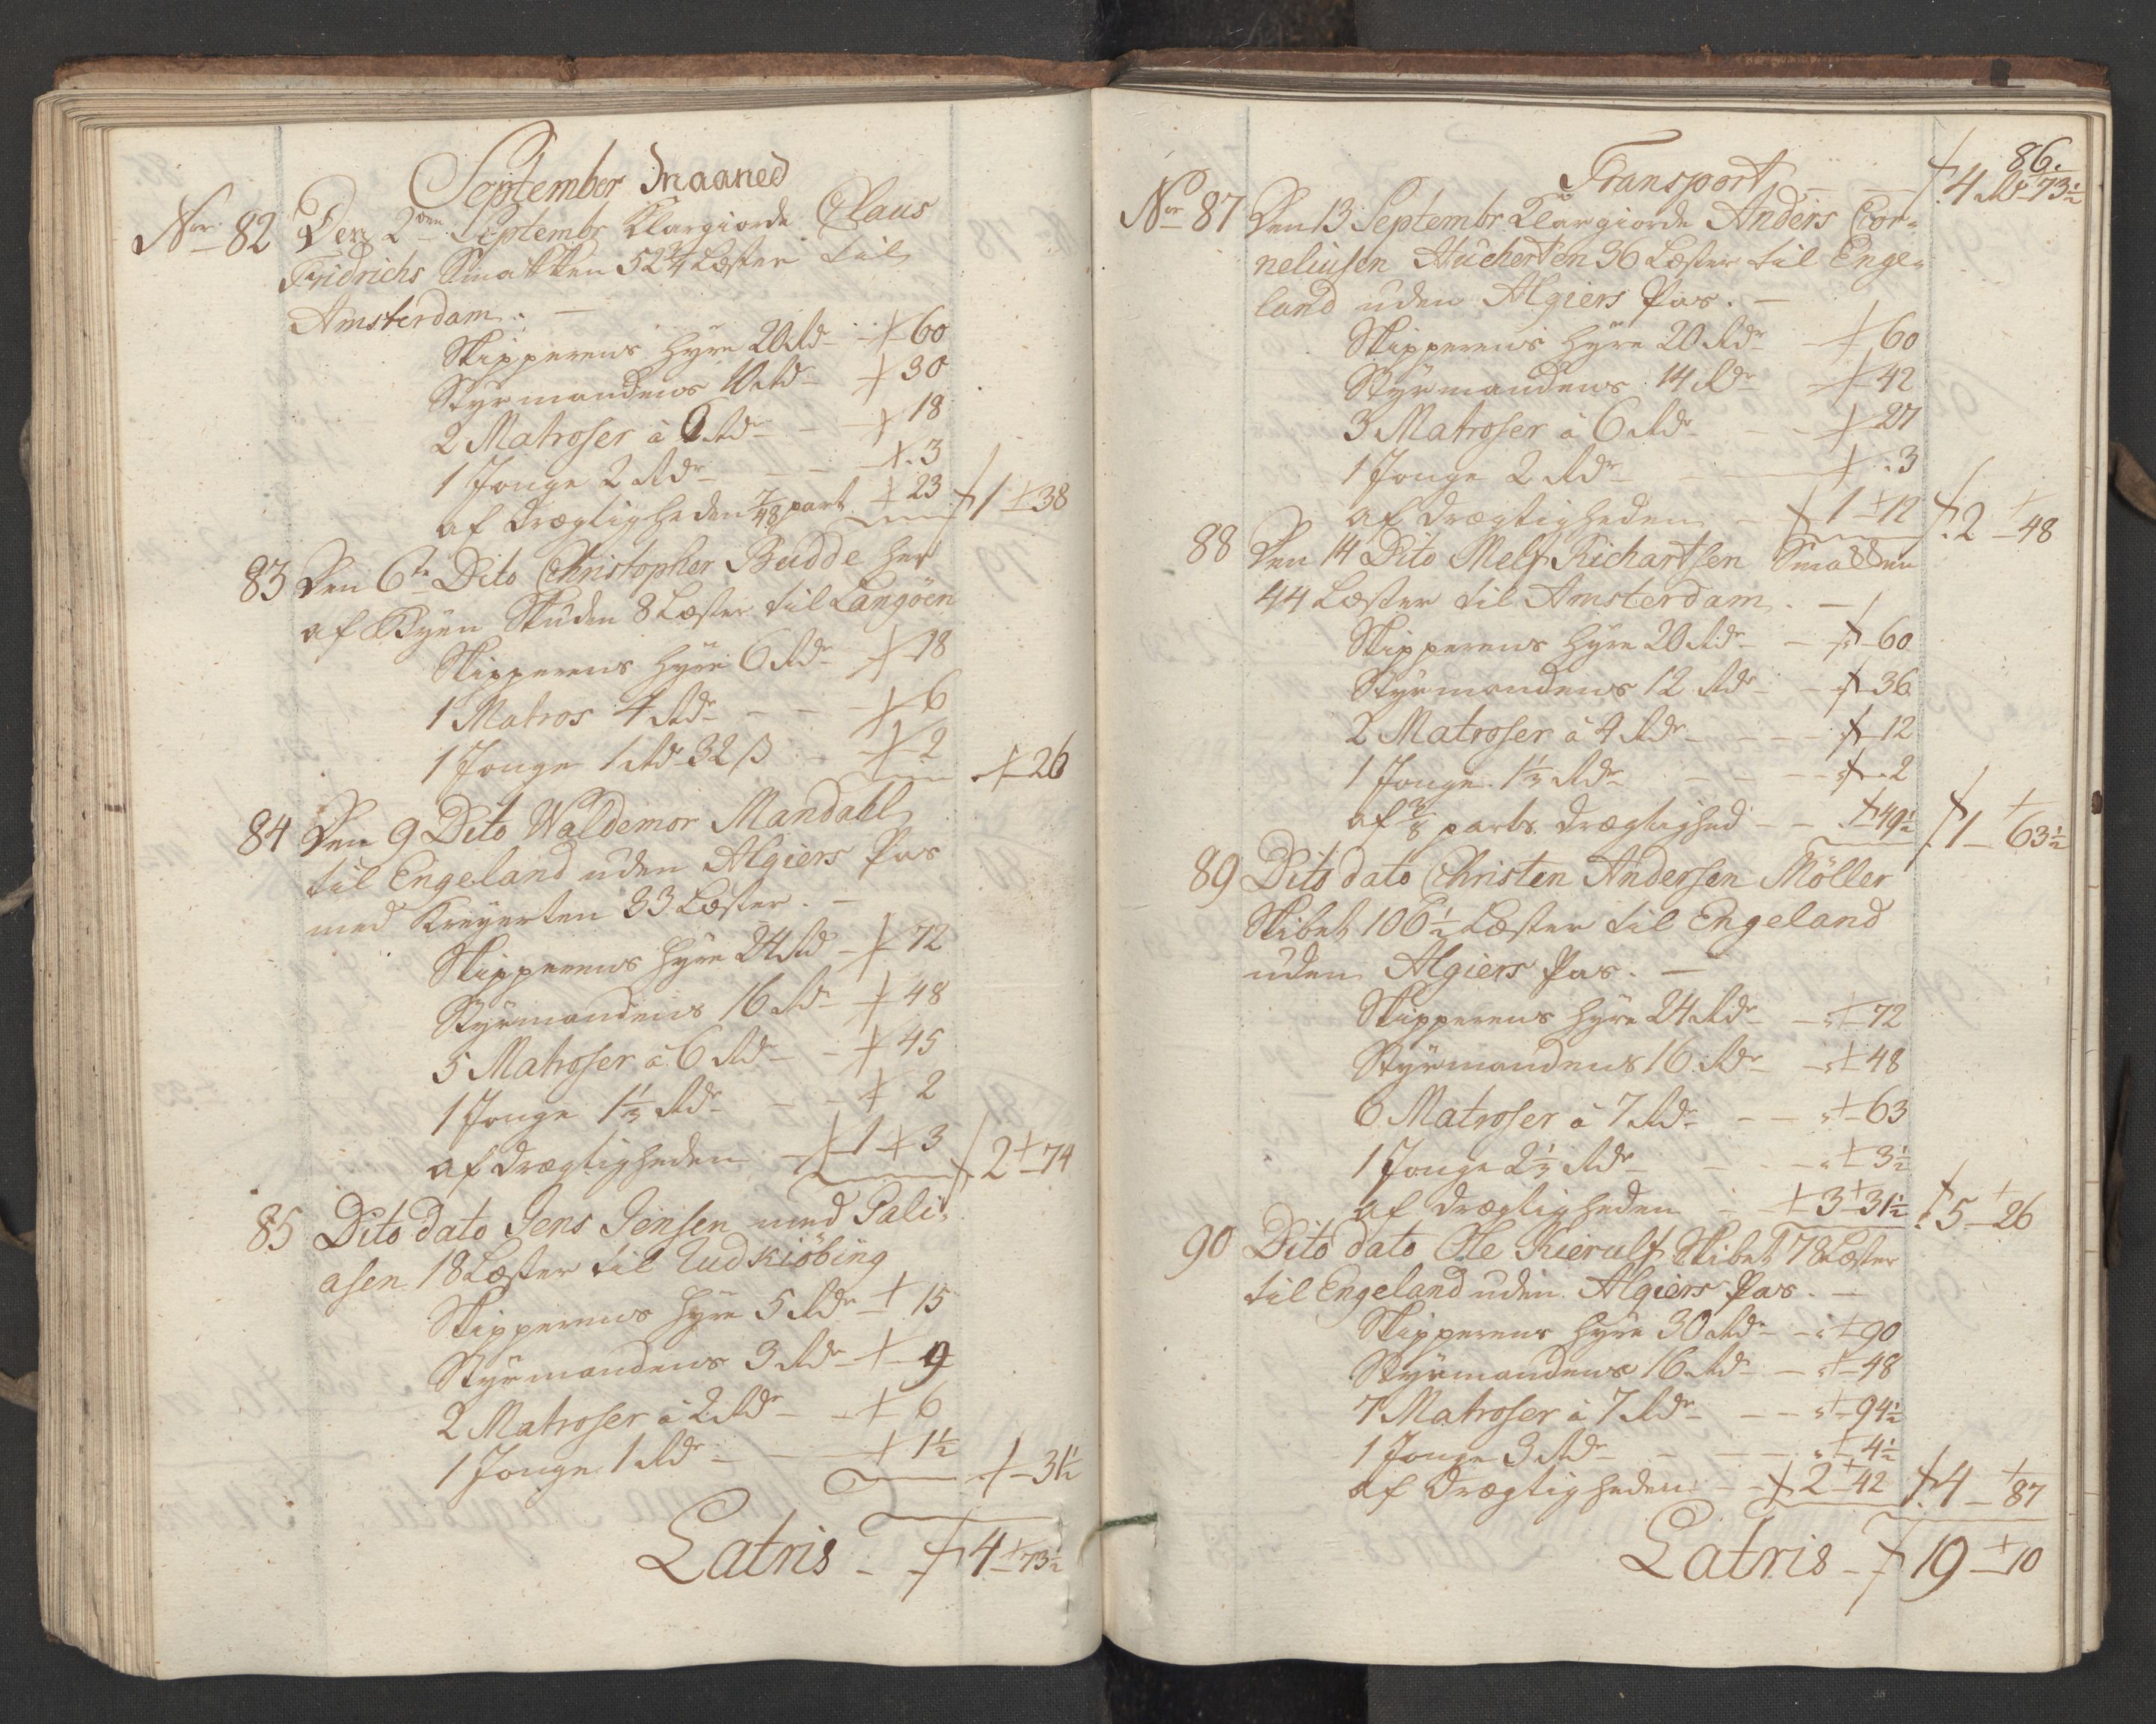 September Maaned
No 82 Den 2den Septembr Klargiorde Claus
Fridrichs Smakken 52 3/4 Læster til
Amsterdam. —
Skipperens Hyre 20 Rd - 60
Styrmandens 10 Rd - 30
2 Matroser à 6 Rdr - - 18
1 Jonge 2 Rdr - - 3
af Drægtigheden 7/48 part 23 1 38
83 Den 6te Dito Christopher Budde her
af Byen Skuden 8 Læster til Langöen
Skipperens Hyre 6 Rdr 18
1 Matros 4 Rdr - - 6
1 Jonge 1 Rd 32 ß - 2 26
84 Den 9 Dito Waldemor Mandahl
til Engeland uden Algiers Pas
med Kreyerten 33 Læster. —
Skipperens Hyre 24 Rd - 72
Styrmandens 16 Rdr 48
5 Matroser à 6 Rdr - 45
1 Jonge 1 1/3 Rdr - - 2
af Drægtigheden - 1 3 2 74
85 Dito dato Jens Jensen med Pali-
asen 18 Læster til Rudkiöbing
Skipperens Hyre 5 Rdr 15
Styrmandens 3 Rdr 9
2 Matroser à 2 Rdr - 6
1 Jonge 1 Rdr - - 1 1/2 31 1/2
Latris - 4 73 1/2
86.
Transport - - 4 Mk 73 1/2
No 87 Den 13 Septembr Klargiorde Anders Cor-
neliusen Huckerten 36 Læster til Enge-
land uden Algiers Pas. —
Skipperens Hyre 20 Rdr - 60
Styrmandens 14 Rdr - 42
3 Matroser à 6 Rdr - - 27
1 Jonge 2 Rdr - 3
af Drægtigheden - 1 12 2 48
88 Den 14 Dito Melf Richartsen Smakken
44 Læster til Amsterdam. —
Skipperens Hyre 20 Rdr - 60
Styrmandens 12 Rdr - 36
2 Matroser à 4 Rdr - - - 12
1 Jonge 1 1/3 Rdr - - - 2
af 3/8 parts Drægtighed - - 49 1/2 1 63 1/2
89 Dito dato Christen Andersen Möller
Skibet 106 1/2 Læster til Engeland
uden Algiers Pas. —
Skipperens Hyre 24 Rdr - 72
Styrmandens 16 Rdr - 48
6 Matroser à 7 Rdr - - 63
1 Jonge 2 1/3 Rdr - - 3 1/2
af Drægtigheden - 3 31 1/2 5 26
90 Dito dato Ole Kierulf Skibet 78 Læster
til Engeland uden Algiers Pas. —
Skipperens Hyre 30 Rdr - 90
Styrmandens 16 Rd - 48
7 Matroser à 7 Rdr - - 94 1/2
1 Jonge 3 Rdr - - 4 1/2
af Drægtigheden - - 2 42 4 87
Latris - 19 10